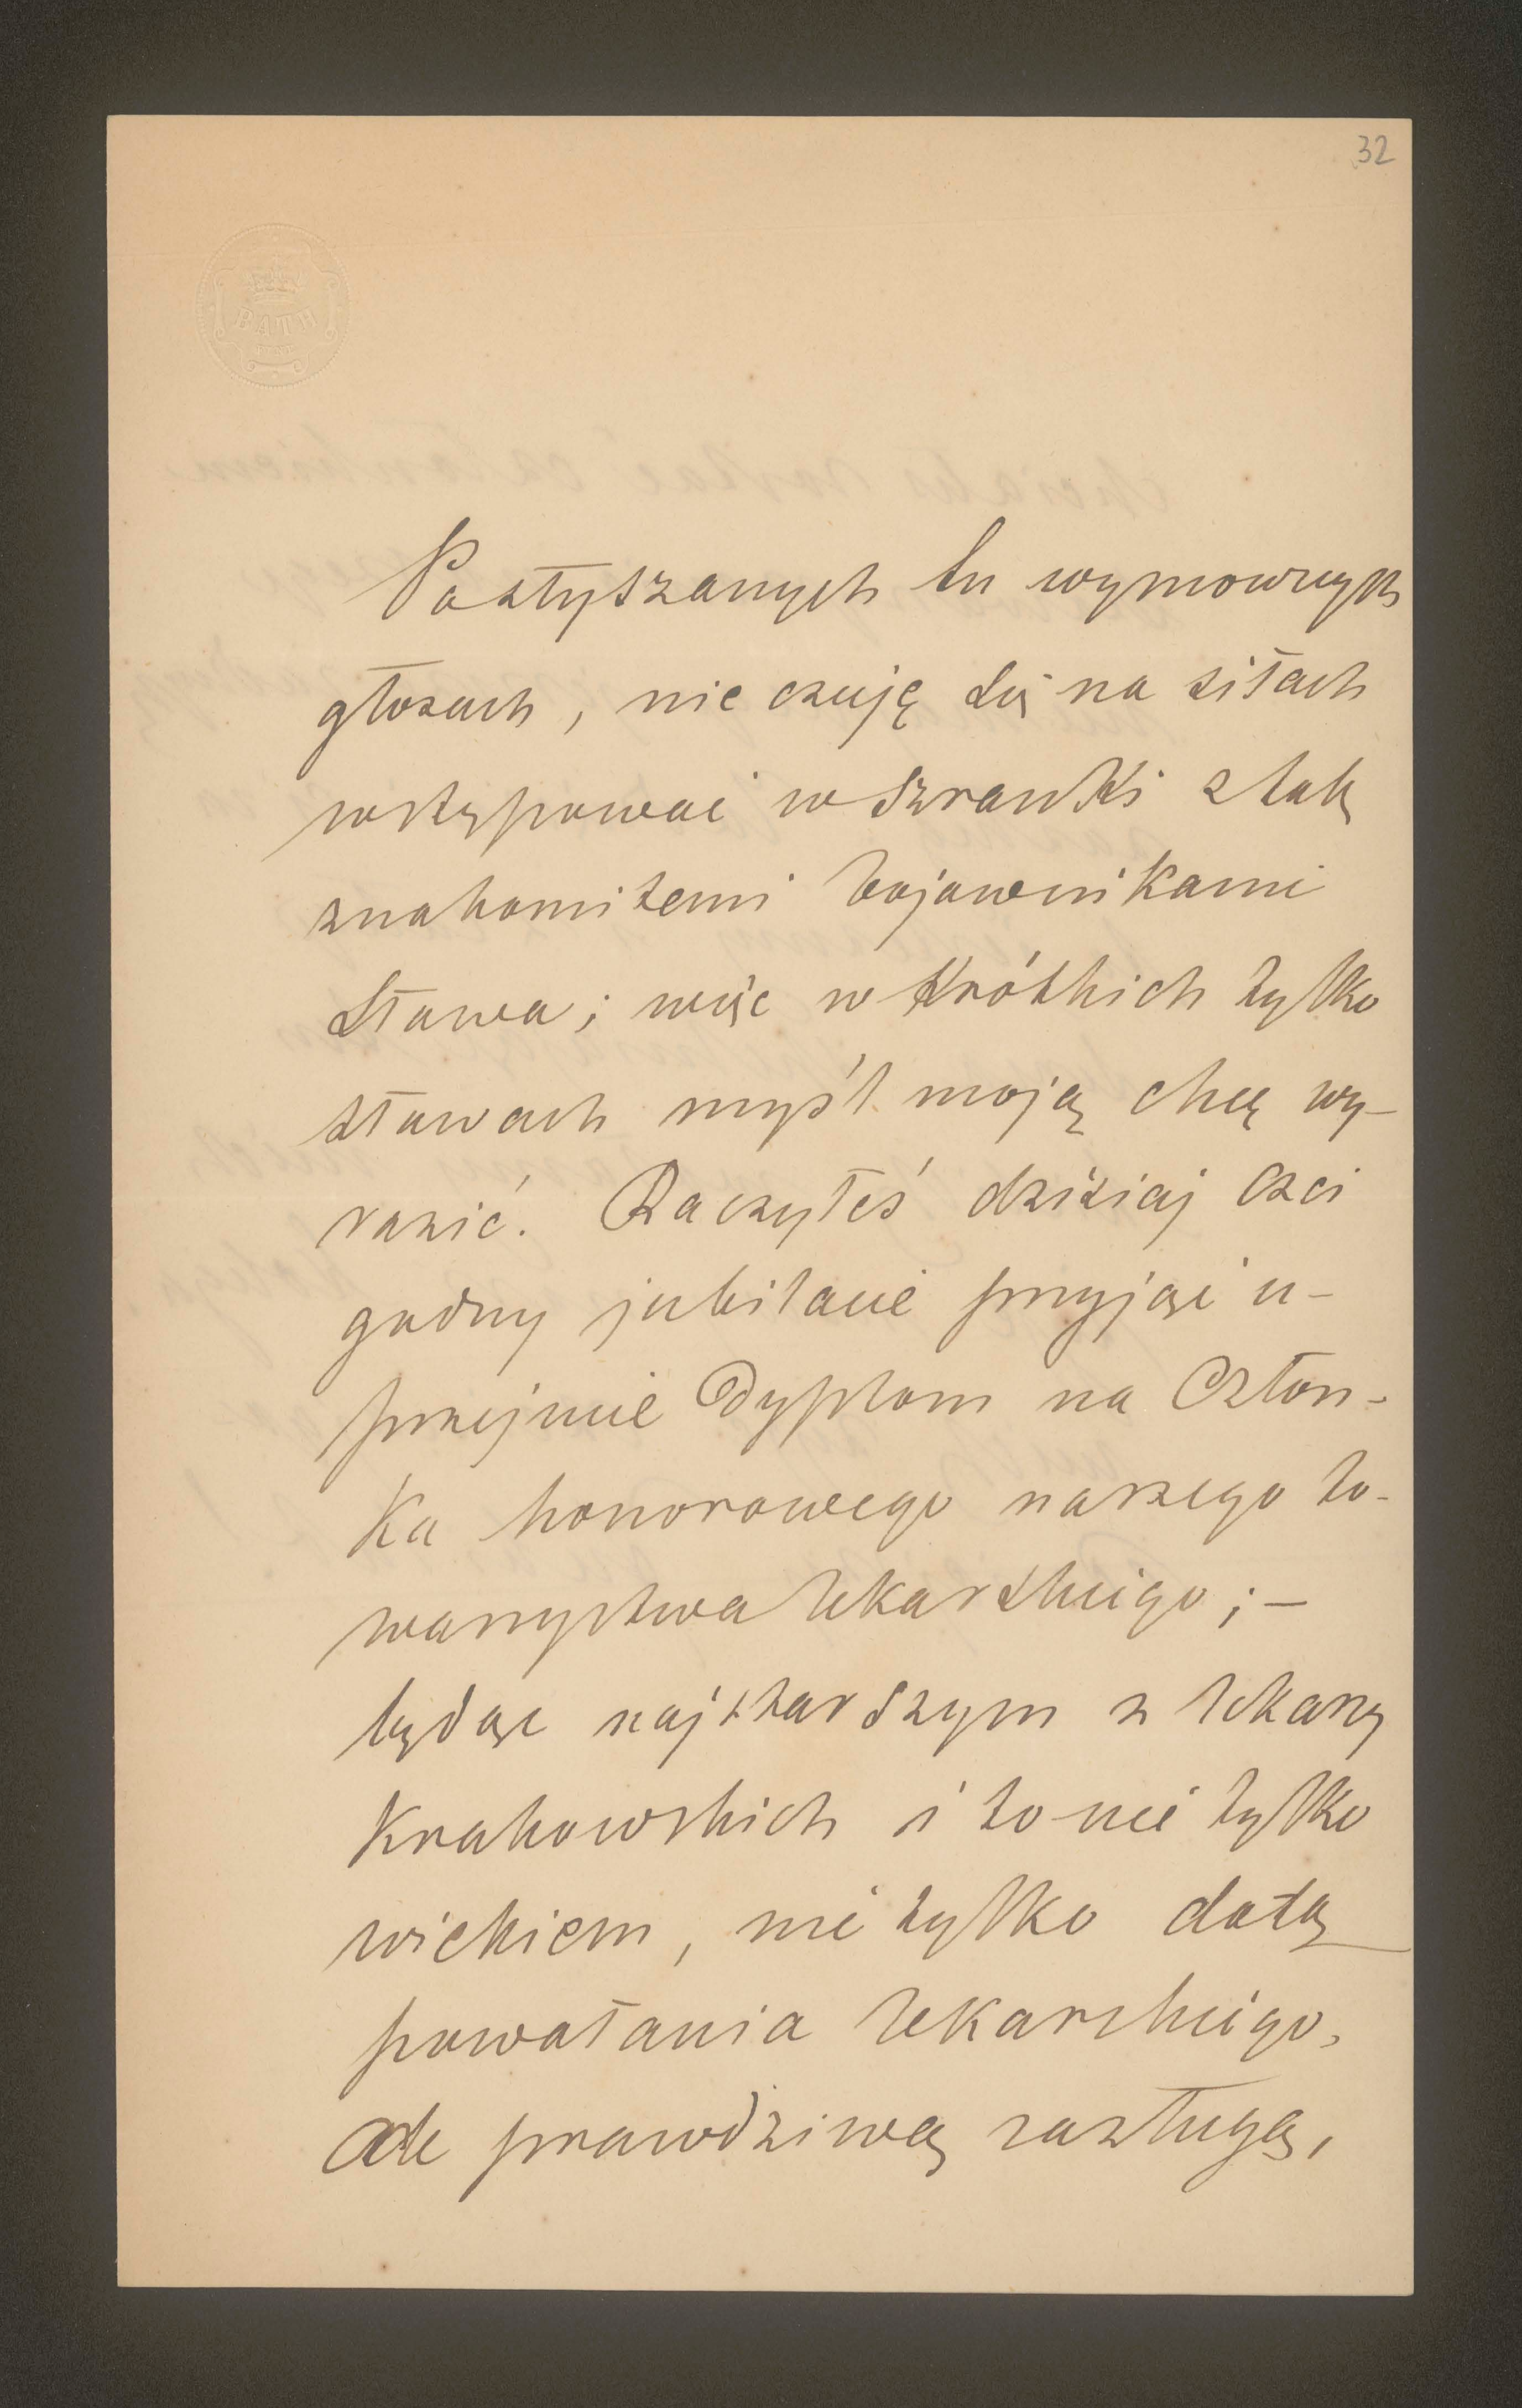 32
BATH
Po słyszanych tu wymownych
głosach, nie czuję się na siłach
wstępować w szranki z tak
znakomitemi bojownikami
słowa; więc w krótkich tylko
słowach myśl moją chcę wy-
razić. Raczyłeś dzisiaj czci
godny jubilacie przyjąć u-
przejmie Dyplom na Człon-
ka honorowego naszego to-
warzystwa lekarskiego; –
będąc najstarszym z lekarzy
Krakowskich i to nie tylko
wiekiem, nie tylko datą
powołania lekarskiego,
ale prawdziwą zasługą,